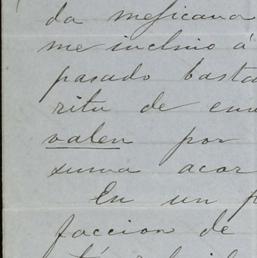 da mejicana
me inclino á
pasado basta
ritu de em
valen por
suma acor
En un p
faccion de